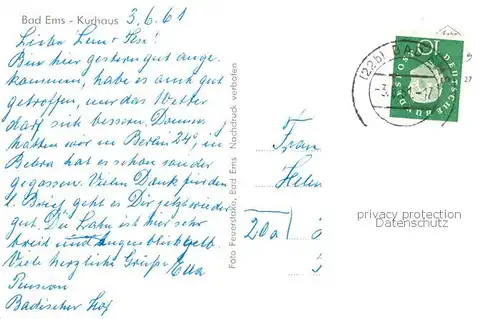 Bad Ems - Kurhaus 3.6.61
Bin hier gestern gut ange-
kommen, habe es auch gut
getroffen, nur das Wetter
darf sich bessern. Donners
hatten wir in Berlin 24°, in
Bebra hat es schon
gegossen. Vielen Dank für den
l. Brief geht es Dir jetzt wieder
gut. Die Lahn ist hier sehr
breit und augenblickl. gelb.
Viele herzliche Grüße Ella
Pension
Badischer Hof
Foto Feuerstake, Bad Ems Nachdruck verboten
Frau
Helen
20a
(22b) BA
-3.
-17
10
DEUTSCHE BUNDESPOST
27
privacy protection
Datenschutz